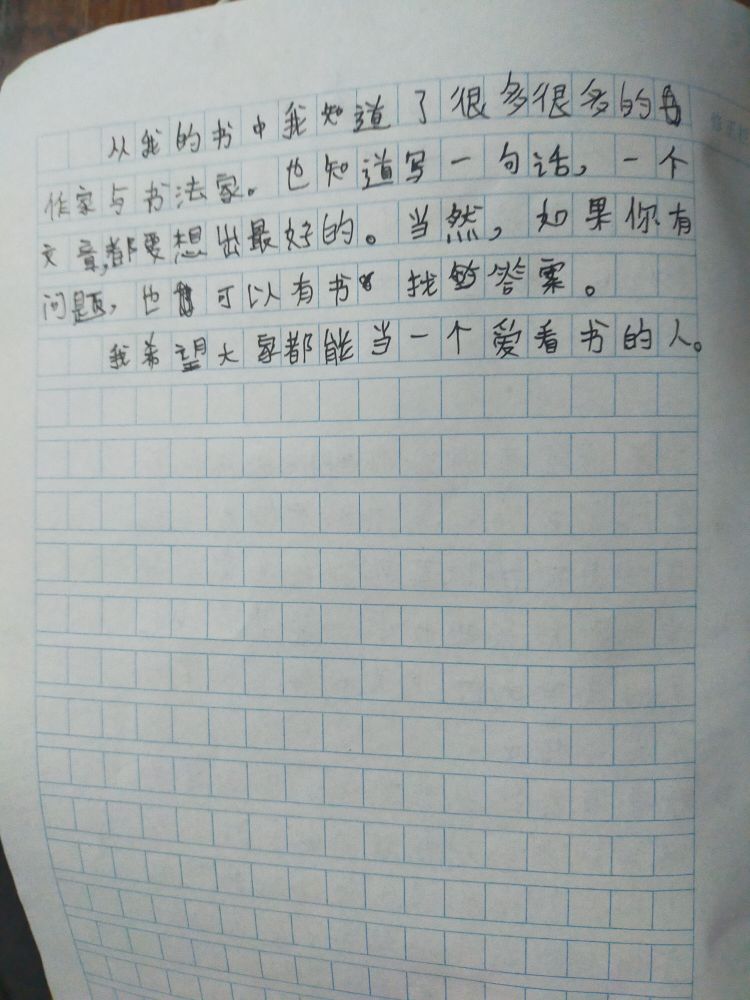 从我的书中我知道了很多很多的
作家与书法家。也知道写一句话，一个
文章，都要想出最好的。当然，如果你有
问题，也可以有书 找 答案。
我希望大家都能当一个爱看书的人。